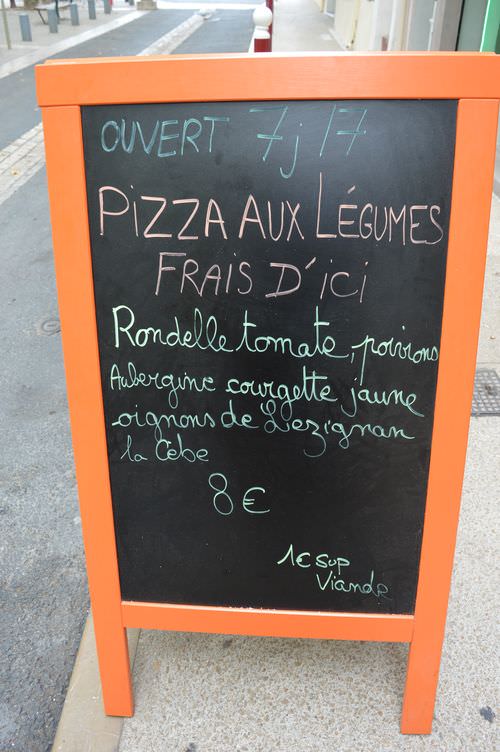 OUVERT 7j/7
PIZZA AUX LÉGUMES
FRAIS D'ICI
Rondelle tomate, poivrons
Aubergine courgette jaune
oignons de Lezignan
la Cèbe
8€
1€ sup
Viande